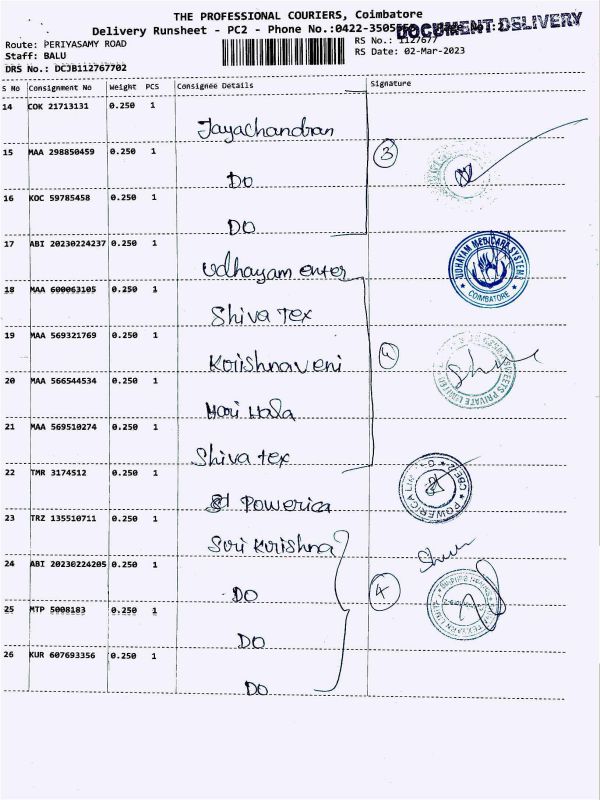 THE PROFESSIONAL COURIERS, Coimbatore
Delivery Runsheet - PC2 - Phone No.:0422-3505
DOCUMENT DELIVERY
Route: PERIYASAMY ROAD
RS No.: 1127677
Staff: BALU
RS Date: 02-Mar-2023
DRS No.: DCJB112767702
S No Consignment No Weight PCS Consignee Details Signature
14 COK 21713131 0.250 1
Jayachandran
15 MAA 298850459 0.250 1
3
DO
16 KOC 59785458 0.250 1
DO
17 ABI 20230224237 0.250 1
Udhayam enter
UDHAYAM MEDICARE SYSTEMS
COIMBATORE
18 MAA 600063105 0.250 1
Shiva Tex
19 MAA 569321769 0.250 1
Krishnaveni
SWEETS PRIVATE LIMITED
20 MAA 566544534 0.250 1
21 MAA 569510274 0.250 1
Shiva tex
22 TMR 3174512 0.250 1
Powerica
POWERICA LIM
CBE
23 TRZ 135510711 0.250 1
Sri Krishna
24 ABI 20230224205 0.250 1
DO
4
25 MTP 5008183 0.250 1
DO
26 KUR 607693356 0.250 1
DO